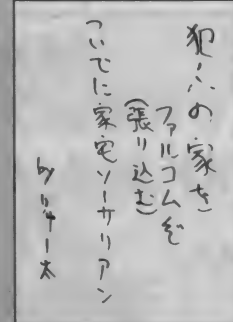 犯人の家を
ファルコムぞ
(張り込む)
ついでに家宅ソーサリアン
by リサー太